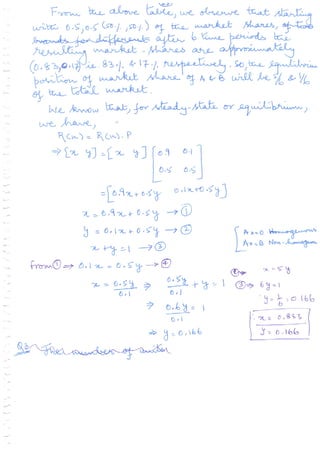 we
From the above table, we observe that starting
with 0.5, 0.5 (50%, 50%) of the market shares, of two
brands for different after 6 time periods the
resulting market shares are approximately
(0.83, 0.17) ie. 83% & 17% respectively. So, the equilibrium
position of market share of A & B will be 5/6 & 1/6
of the total market.
We know that, for steady-state or equilibrium,
we have,
R(n) = R(n). P
⇒ [x y] = [x y] [0.9 0.1
0.5 0.5]
= [0.9x + 0.5y 0.1x + 0.5y]
x = 0.9x + 0.5y → ①
y = 0.1x + 0.5y → ②
x + y = 1 → ③
[A x = 0 Homogenous
A x = B Non-homogen
from ① ⇒ 0.1x = 0.5y → ④
④ ⇒ x = 5y
x = 0.5y / 0.1 ⇒ 0.5y / 0.1 + y = 1
③ ⇒ 6y = 1
⇒ 0.6y / 0.1 = 1
y = 1/6 = 0.166
⇒ y = 0.166
x = 0.835
y = 0.166
Q3 The number of